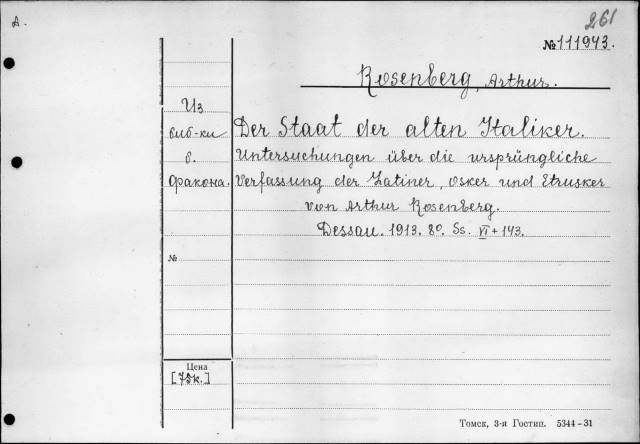 A.
261
№111943.
Rosenberg, Arthur.
Из
биб-ки
б.
Факона.
Der Staat der alten Italiker.
Untersuchungen über die ursprüngliche
Verfassung der Latiner, Osker und Etrusker
von Arthur Rosenberg.
Dessau. 1913. 8o. Ss. VI + 143.
№
Цена
[75k.]
Томск, 3-я Гостип. 5344-31